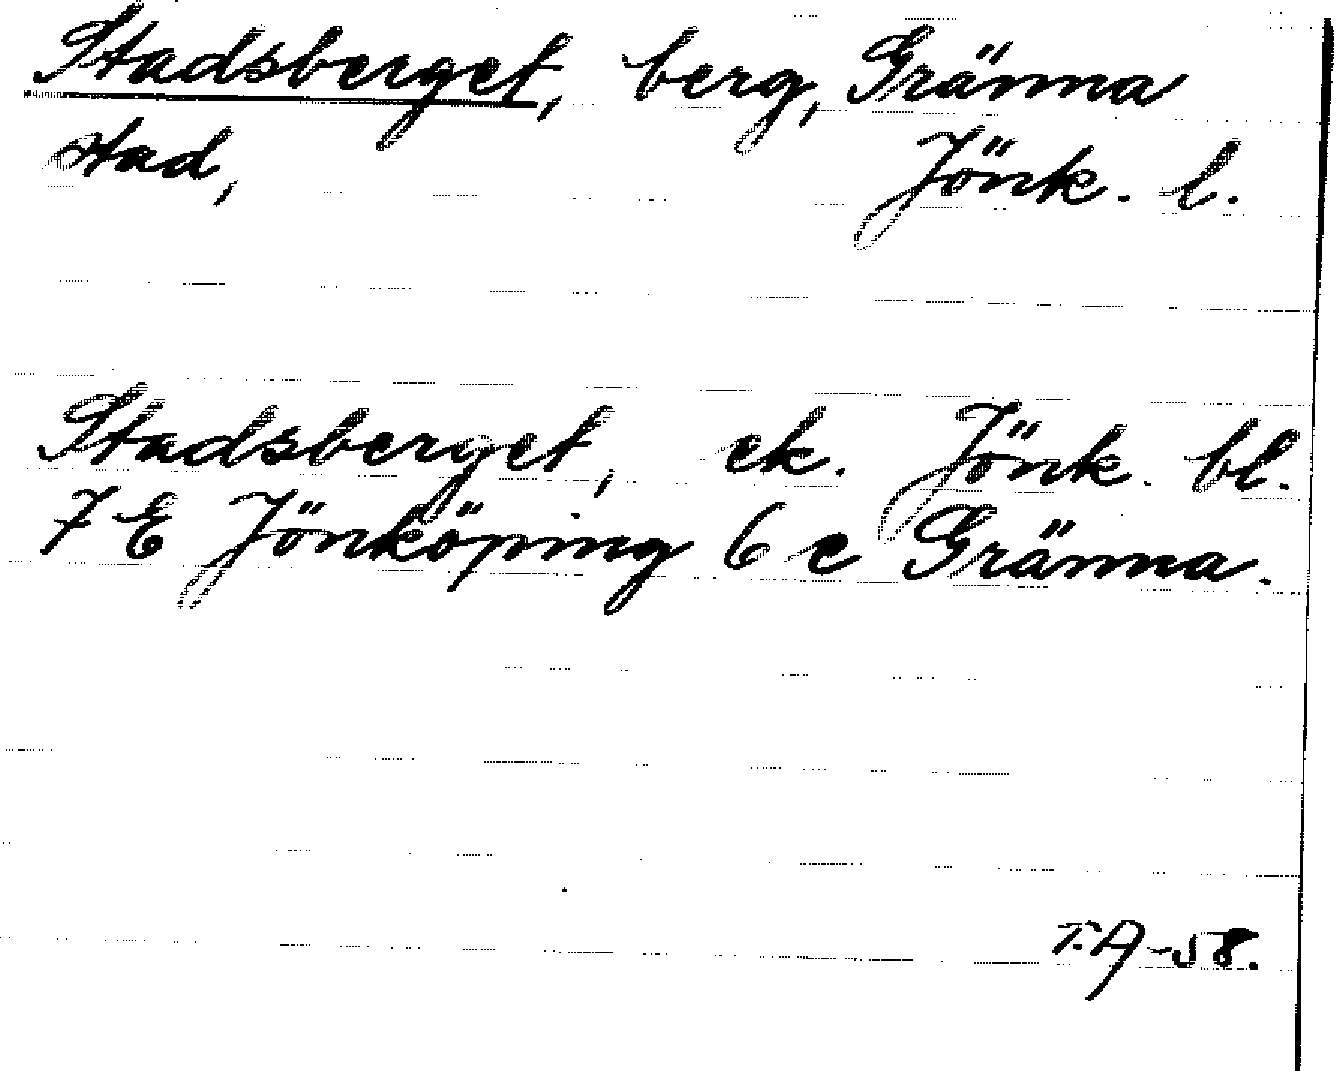 Stadsberget, berg, Gränna
stad, Jönk. l.
Stadsberget, ek. Jönk. bl.
7 E Jönköping 6 e Gränna.
T.A-58.